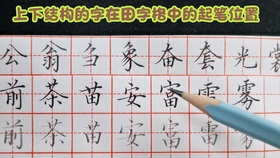 上下结构的字在田字格中的起笔位置
公翁刍象奋套光棠
前茶苗安富雷雾
前茶苗安富雷雾